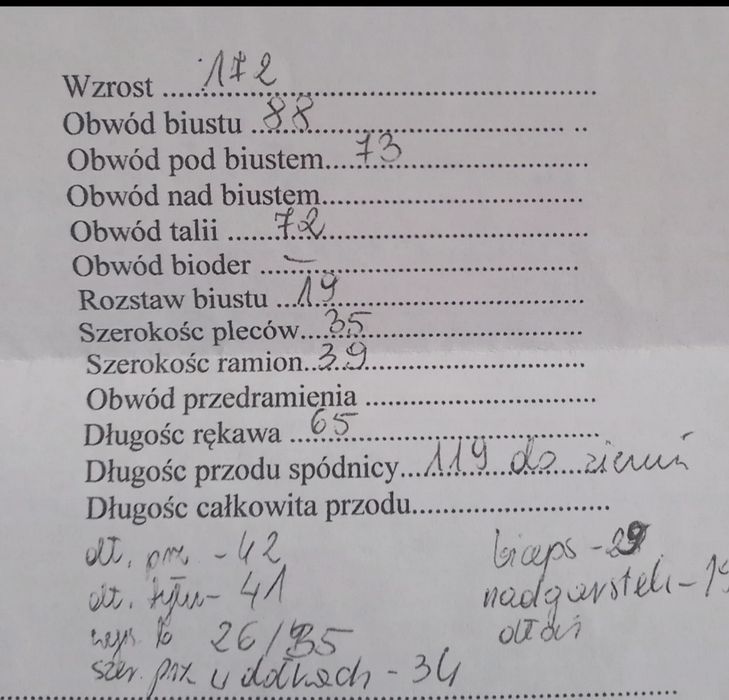 Wzrost ..... 172 .....
Obwód biustu ..... 88 .....
Obwód pod biustem..... 73 .....
Obwód nad biustem.....
Obwód talii ..... 72 .....
Obwód bioder ..... — .....
Rozstaw biustu ..... 19 .....
Szerokośc pleców..... 35 .....
Szerokośc ramion..... 39 .....
Obwód przedramienia .....
Długośc rękawa ..... 65 .....
Długośc przodu spódnicy..... 119 do ziemi
Długośc całkowita przodu.....
dł. prz - 42 biceps - 29
dł. tyłu - 41 nadgarstek -
26/35 dłoń
szer. prz. w dołkach - 34